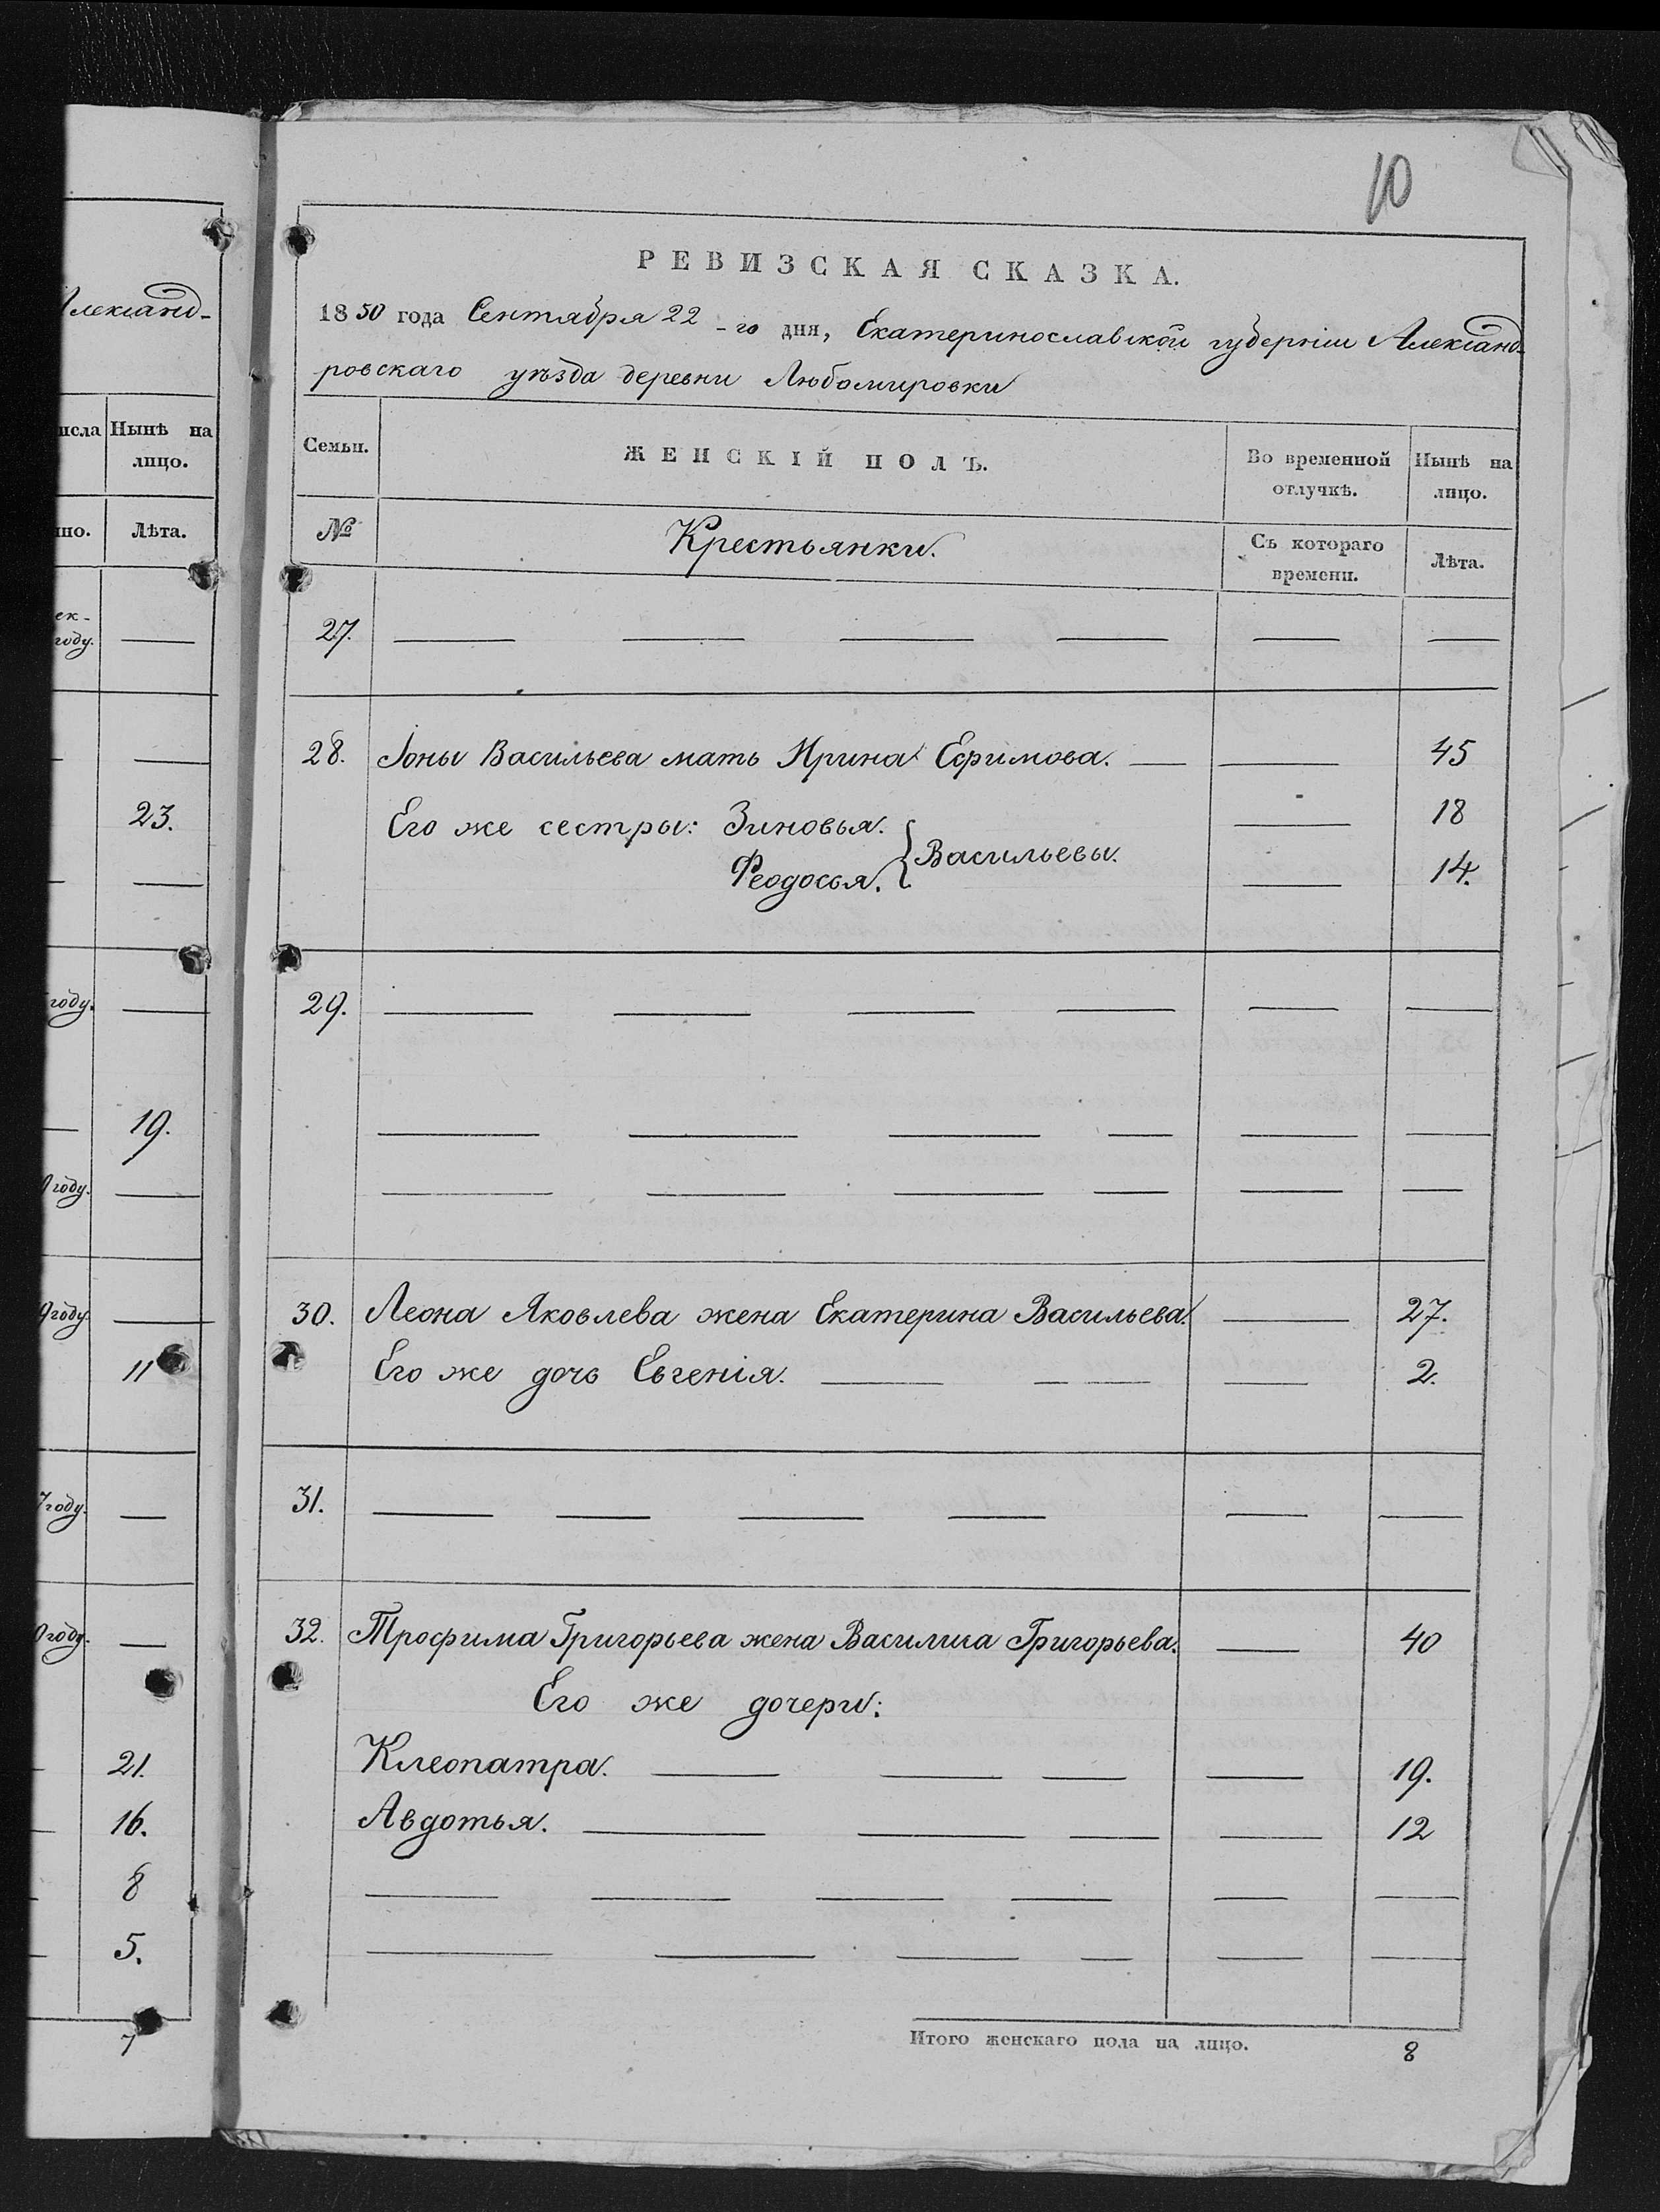 Александ-
исла Нынѣ на
лицо.
но. Лѣта.
ек-
году.
23.
году.
19.
году.
9 году.
11
7 году.
0 году.
21.
16.
8
5.
7
10
РЕВИЗСКАЯ СКАЗКА.
1850 года Сентября 22-го дня, Екатеринославской губерніи Александ-
ровскаго уѣзда деревни Любомировки
Семьи. ЖЕНСКІЙ ПОЛЪ. Во временной Нынѣ на
отлучкѣ. лицо.
№ Крестьянки. Съ котораго Лѣта.
времени.
27.
28. Іоны Васильева мать Ирина Ефимова. 45
Его же сестры: Зиновья. 18
Васильевы.
Феодосья. 14.
29.
30. Леона Яковлева жена Екатерина Васильева. 27.
Его же дочь Евгенія. 2.
31.
32. Трофима Григорьева жена Василиса Григорьева. 40
Его же дочери:
Клеопатра. 19.
Авдотья. 12
Итого женскаго пола на лицо. 8